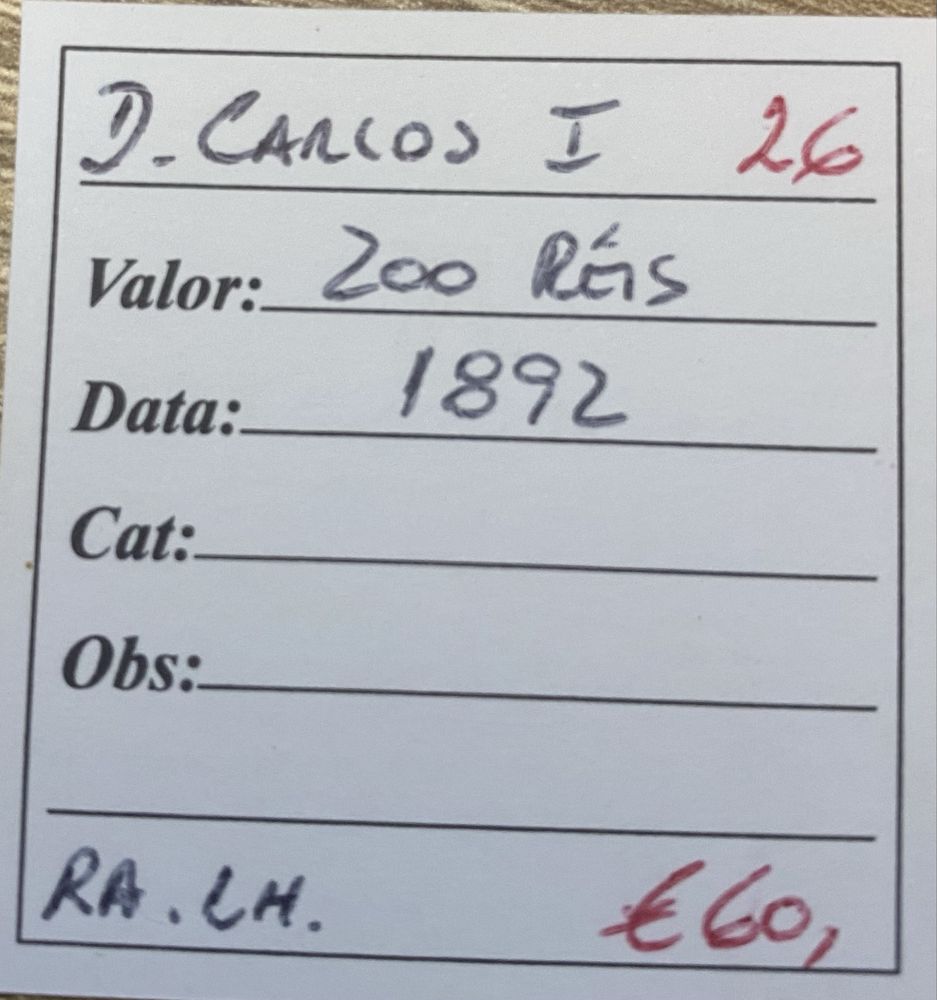 D. CARLOS I 26
Valor: 200 RÉIS
Data: 1892
Cat:
Obs:
RA. LH. €60,